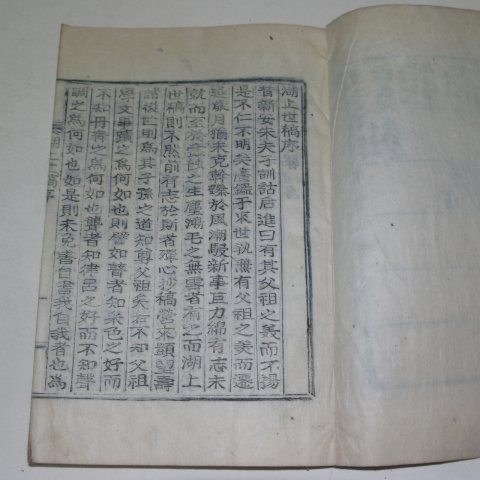 湖上世稿序
昔新安朱夫子訓詁后進曰有其父祖之美而不揚
是不仁不明矣
來世孰無有父祖之美而遷
延歲月猶未克幹
於風潮
新事巨力綿有志未
就而至於
之生塵鴻毛之無雲者有之而湖上
世稿則不然前有志於斯者殫心抄稿營來
壽
諸後世明爲其子孫之道知尊父祖矣若不知父祖
學文事蹟之爲何如也則譬如瞽者知采色之好而
不知丹靑之爲何如也聾者知律呂之好而不知聲
調之爲何如也如是則未免書自書我自我者也爲